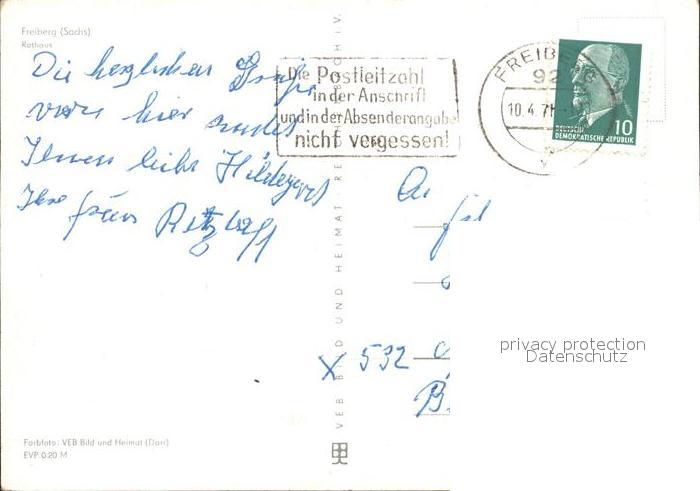 Freiberg (Sachs)
Rathaus
Die herzlichen Grüße
von hier sendet
Ihnen liebe Hildegard
Ihre frau
Die Postleitzahl
in der Anschrift
und in der Absenderangabe
nicht vergessen!
FREIBERG
92
10.4.71
DEUTSCHE
DEMOKRATISCHE REPUBLIK
10
VEB BILD UND HEIMAT REICHENBACH I. V.
An
X 532
privacy protection
Datenschutz
Farbfoto: VEB Bild und Heimat (Darr)
EVP 0.20 M